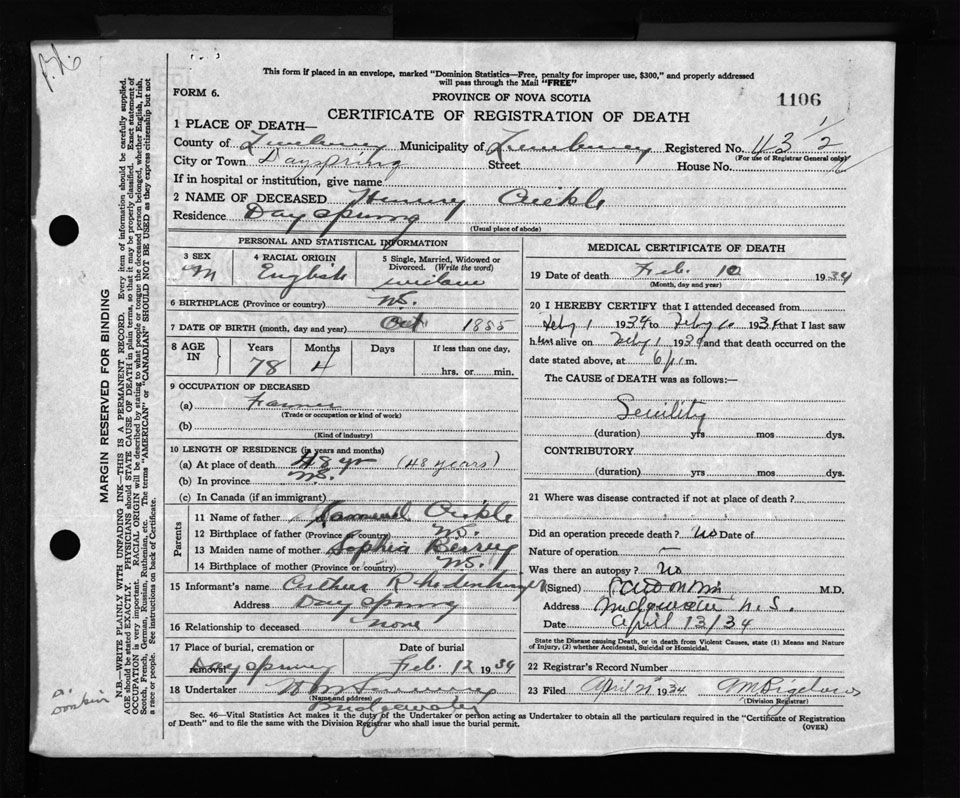 This form if placed in an envelope, marked "Dominion Statistics—Free, penalty for improper use, $300," and properly addressed
will pass through the Mail "FREE"
FORM 6.
PROVINCE OF NOVA SCOTIA
1106
CERTIFICATE OF REGISTRATION OF DEATH
1 PLACE OF DEATH—
County of Lunenburg Municipality of Lunenburg Registered No. 43 1/2
(For use of Registrar General only)
City or Town Dayspring Street House No.
If in hospital or institution, give name
2 NAME OF DECEASED Henry Oickle
Residence Dayspring
(Usual place of abode)
PERSONAL AND STATISTICAL INFORMATION
3 SEX M
4 RACIAL ORIGIN English
5 Single, Married, Widowed or Divorced. (Write the word)
6 BIRTHPLACE (Province or country) N.S.
7 DATE OF BIRTH (month, day and year) Oct 1855
8 AGE IN Years 78 Months 4 Days If less than one day, hrs. or min.
9 OCCUPATION OF DECEASED
(a) Farmer
(Trade or occupation or kind of work)
(b)
(Kind of industry)
10 LENGTH OF RESIDENCE (in years and months)
(a) At place of death 48 yr (48 years)
(b) In province N.S.
(c) In Canada (if an immigrant)
Parents
11 Name of father Samuel Oickle
12 Birthplace of father (Province or country) N.S.
13 Maiden name of mother Sophia
14 Birthplace of mother (Province or country) N.S.
15 Informant's name Arthur R
Address Dayspring
16 Relationship to deceased none
17 Place of burial, cremation or removal Dayspring
Date of burial Feb. 12 1934
18 Undertaker
(Name and address)
Bridgewater
MEDICAL CERTIFICATE OF DEATH
19 Date of death Feb. 10 1934
(Month, day and year)
20 I HEREBY CERTIFY that I attended deceased from
Feby 1 1934 to Feby 1934 that I last saw
him alive on Feby 1 1934 and that death occurred on the
date stated above, at 6 p.m.
The CAUSE of DEATH was as follows:—
Senility
(duration) yrs mos dys.
CONTRIBUTORY
(duration) yrs mos dys.
21 Where was disease contracted if not at place of death?
Did an operation precede death? no Date of
Nature of operation —
Was there an autopsy? No
(Signed) M.D.
Address Bridgewater N.S.
Date April 13/34
State the Disease causing Death, or in death from Violent Causes, state (1) Means and Nature
of Injury, (2) whether Accidental, Suicidal or Homicidal.
22 Registrar's Record Number
23 Filed April 21 1934
(Division Registrar)
Sec. 46—Vital Statistics Act makes it the duty of the Undertaker or person acting as Undertaker to obtain all the particulars required in the "Certificate of Registration
of Death" and to file the same with the Division Registrar who shall issue the burial permit.
(OVER)
MARGIN RESERVED FOR BINDING
N.B.—WRITE PLAINLY WITH UNFADING INK—THIS IS A PERMANENT RECORD. Every item of information should be carefully supplied.
AGE should be stated EXACTLY. PHYSICIANS should STATE CAUSE OF DEATH in plain terms, so that it may be properly classified. Exact statement of
OCCUPATION is very important. RACIAL ORIGIN will be described by stating to what people or tongue the deceased person belonged, whether English, Irish,
Scotch, French, German, Russian, Ruthenian, etc. The terms "AMERICAN" or "CANADIAN" SHOULD NOT BE USED as they express citizenship but not
a race or people. See instructions on back of Certificate.